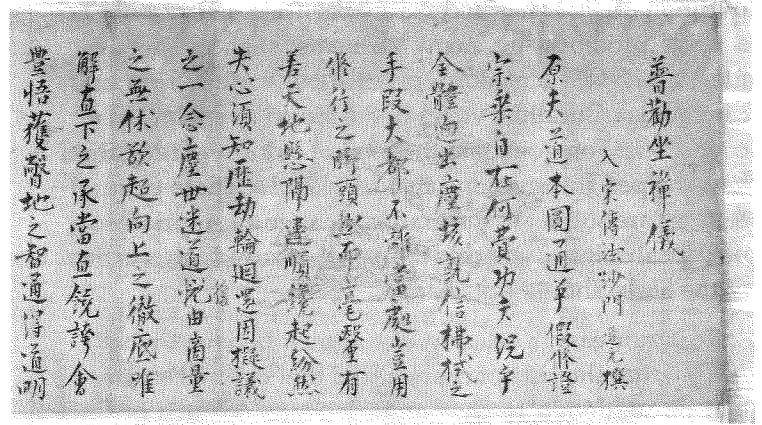 普勸坐禪儀
入宋傳法沙門道元撰
原夫道本圓通爭假修證
宗乘自在何費功夫況乎
全體逈出塵埃孰信拂拭之
手段大都不離當處豈用
修行之脚頭然而毫釐有
差天地懸隔違順纔起紛然
失心須知歷劫輪迴還因擬議
之一念塵世迷道復由商量
之無休欲超向上之徹底唯
解直下之承當直饒誇會
豊悟獲瞥地之智通得道明